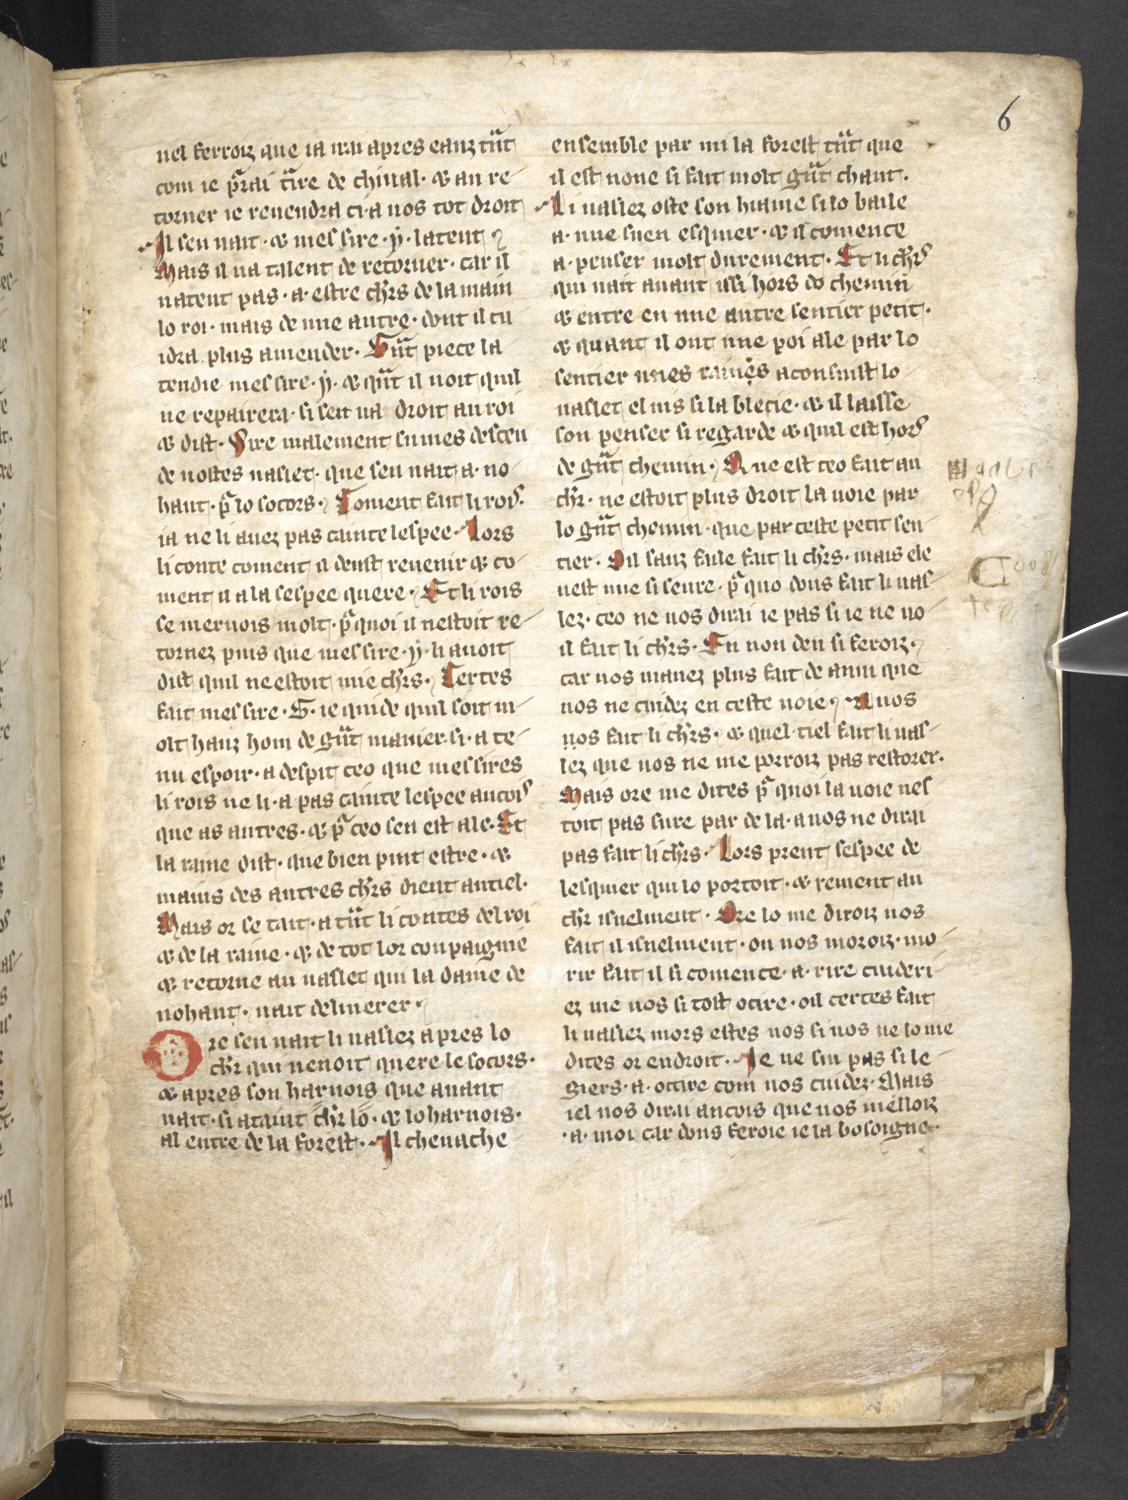 6
uel ferroiz que ia irai apres eauz tāt
com ie p̄rai t̄ire de chiual · ⁊ au re
torner ie reuendra ci a uos tot droit
Il sen uait · ⁊ mes sire · y̍ · latent
Mais il na talent de retorner · car il
natent pas · a · estre ch̄rs de la main
lo roi · mais de une autre · dont il cu
idra plus amender · Gn̄t piece la
tendie mes sire · y̍ · ⁊ qn̄t il uoit quil
ne repairera · si sen ua droit au roi
⁊ dist · Sire malement sumes desceu
de nostes uaslet · que sen uait a · no
hant · p̄ lo socors · Coment fait li rois ·
ia ne li auez pas cainte lespee · Lors
li conte coment il deust reuenir ⁊ co
ment il ala sespee quere · Et li rois
se meruois molt · p̄ quoi il nestoit re
tornez puis que mes sire · y̍ · li auoit
dist quil ne estoit mie ch̄rs · Certes
fait mes sire · G · ie quide quil soit m
olt hauz hom de gn̄t manier · si · a te
nu espoir · a despit ceo que mes sires
li rois ne li · a pas cainte lespee ancois
que as autres · ⁊ p̄ ceo sen est ale · Et
la raine dist · que bien puit estre · ⁊
mains des autres ch̄rs dient autiel ·
Mais or se tait · a tn̄t li contes del roi
⁊ de la raine · ⁊ de tot lor conpaignie
⁊ retorne au uaslet qui la dame de
nohant · uait deliuerer ·
Ore sen uait li uaslez apres lo
ch̄r qui uenoit quere le socors ·
⁊ apres son harnois que auant
uait · si ataint ch̄r lo · ⁊ lo harnois ·
al entre de la forest · Il cheuache
ensemble par mi la forest tn̄t que
il est none si fait molt gn̄t chaut ·
Li uaslez oste son hiame si lo baile
a · une suen esquier · ⁊ il comence
a · penser molt durement · Et li ch̄rs
qui uait auant issi hors do chemin
⁊ entre en une autre sentier petit ·
⁊ quant il ont une poi ale par lo
sentier unes raines aconsuist lo
uaslet el uis si la blecie · ⁊ il laisse
son penser si regarde ⁊ quil est hors
de gn̄t chemin · Que est ceo fait au
ch̄r · ne estoit plus droit la uoie par
lo gn̄t chemin · que par ceste petit sen
tier · Oil sanz faile fait li ch̄rs · mais ele
nest mie si seure · p̄ quo dons fait li uas
lez · ceo ne uos dirai ie pas si ie ne uo
il fait li ch̄rs · En non deu si feroiz ·
car uos mauez plus fait de anui que
uos ne cuidez en ceste uoie · A uos
uos fait li ch̄rs · ⁊ quel · tiel fait li uas
lez que uos ne me porroiz pas restorer ·
Mais ore me dites p̄ quoi la uoie nes
toit pas sure par de la · a uos ne dirai
pas fait li ch̄rs · Lors prent sespee de
lesquier qui lo portoit · ⁊ reuient au
ch̄r isnelment · Ore lo me diroiz uos
fait il isnelment · ou uos moroiz · mo
rir fait il si comence · a · rire cuideri
ez me uos si tost ocire · oil certes fait
li uaslez mors estes uos si uos ne lo me
dites or endroit · Ie ne sui pas si le
giers · a · occire com uos cuidez · Mais
iel uos dirai ancois que uos melloiz
· a · moi car dons feroie ie la bosoigne ·